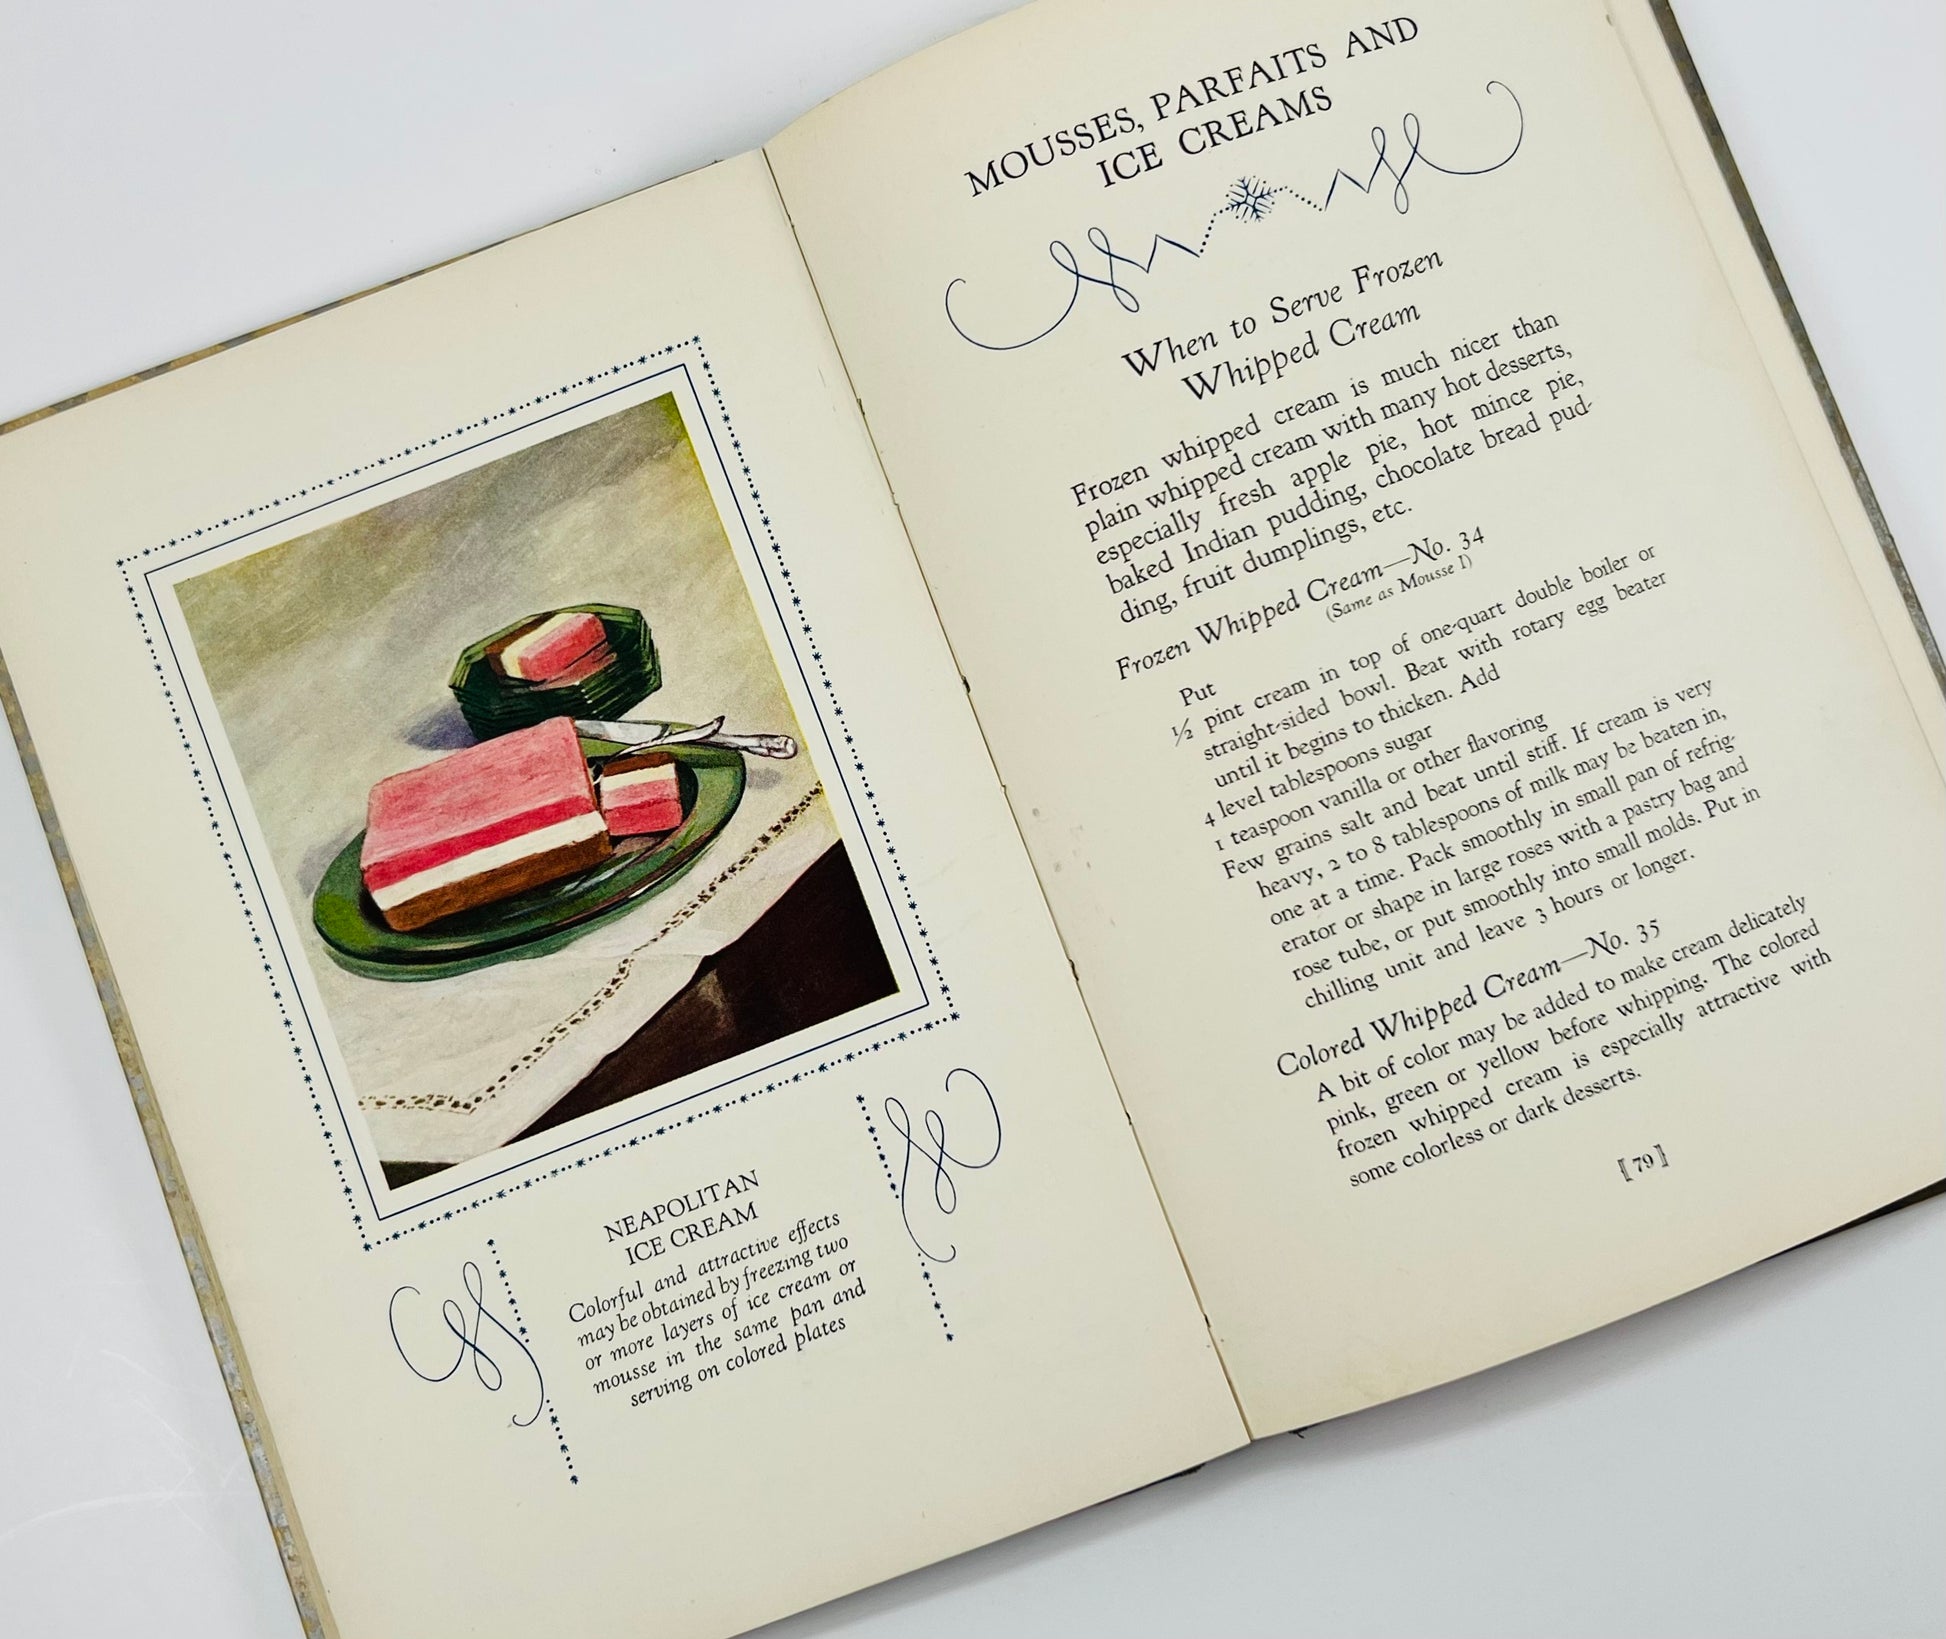 NEAPOLITAN
ICE CREAM
Colorful and attractive effects
may be obtained by freezing two
or more layers of ice cream or
mousse in the same pan and
serving on colored plates
MOUSSES, PARFAITS AND
ICE CREAMS
When to Serve Frozen
Whipped Cream
Frozen whipped cream is much nicer than
plain whipped cream with many hot desserts,
especially fresh apple pie, hot mince pie,
baked Indian pudding, chocolate bread pud-
ding, fruit dumplings, etc.
Frozen Whipped Cream—No. 34
(Same as Mousse I)
Put
½ pint cream in top of one-quart double boiler or
straight-sided bowl. Beat with rotary egg beater
until it begins to thicken. Add
4 level tablespoons sugar
1 teaspoon vanilla or other flavoring
Few grains salt and beat until stiff. If cream is very
heavy, 2 to 8 tablespoons of milk may be beaten in,
one at a time. Pack smoothly in small pan of refrig-
erator or shape in large roses with a pastry bag and
rose tube, or put smoothly into small molds. Put in
chilling unit and leave 3 hours or longer.
Colored Whipped Cream—No. 35
A bit of color may be added to make cream delicately
pink, green or yellow before whipping. The colored
frozen whipped cream is especially attractive with
some colorless or dark desserts.
⟦ 79 ⟧